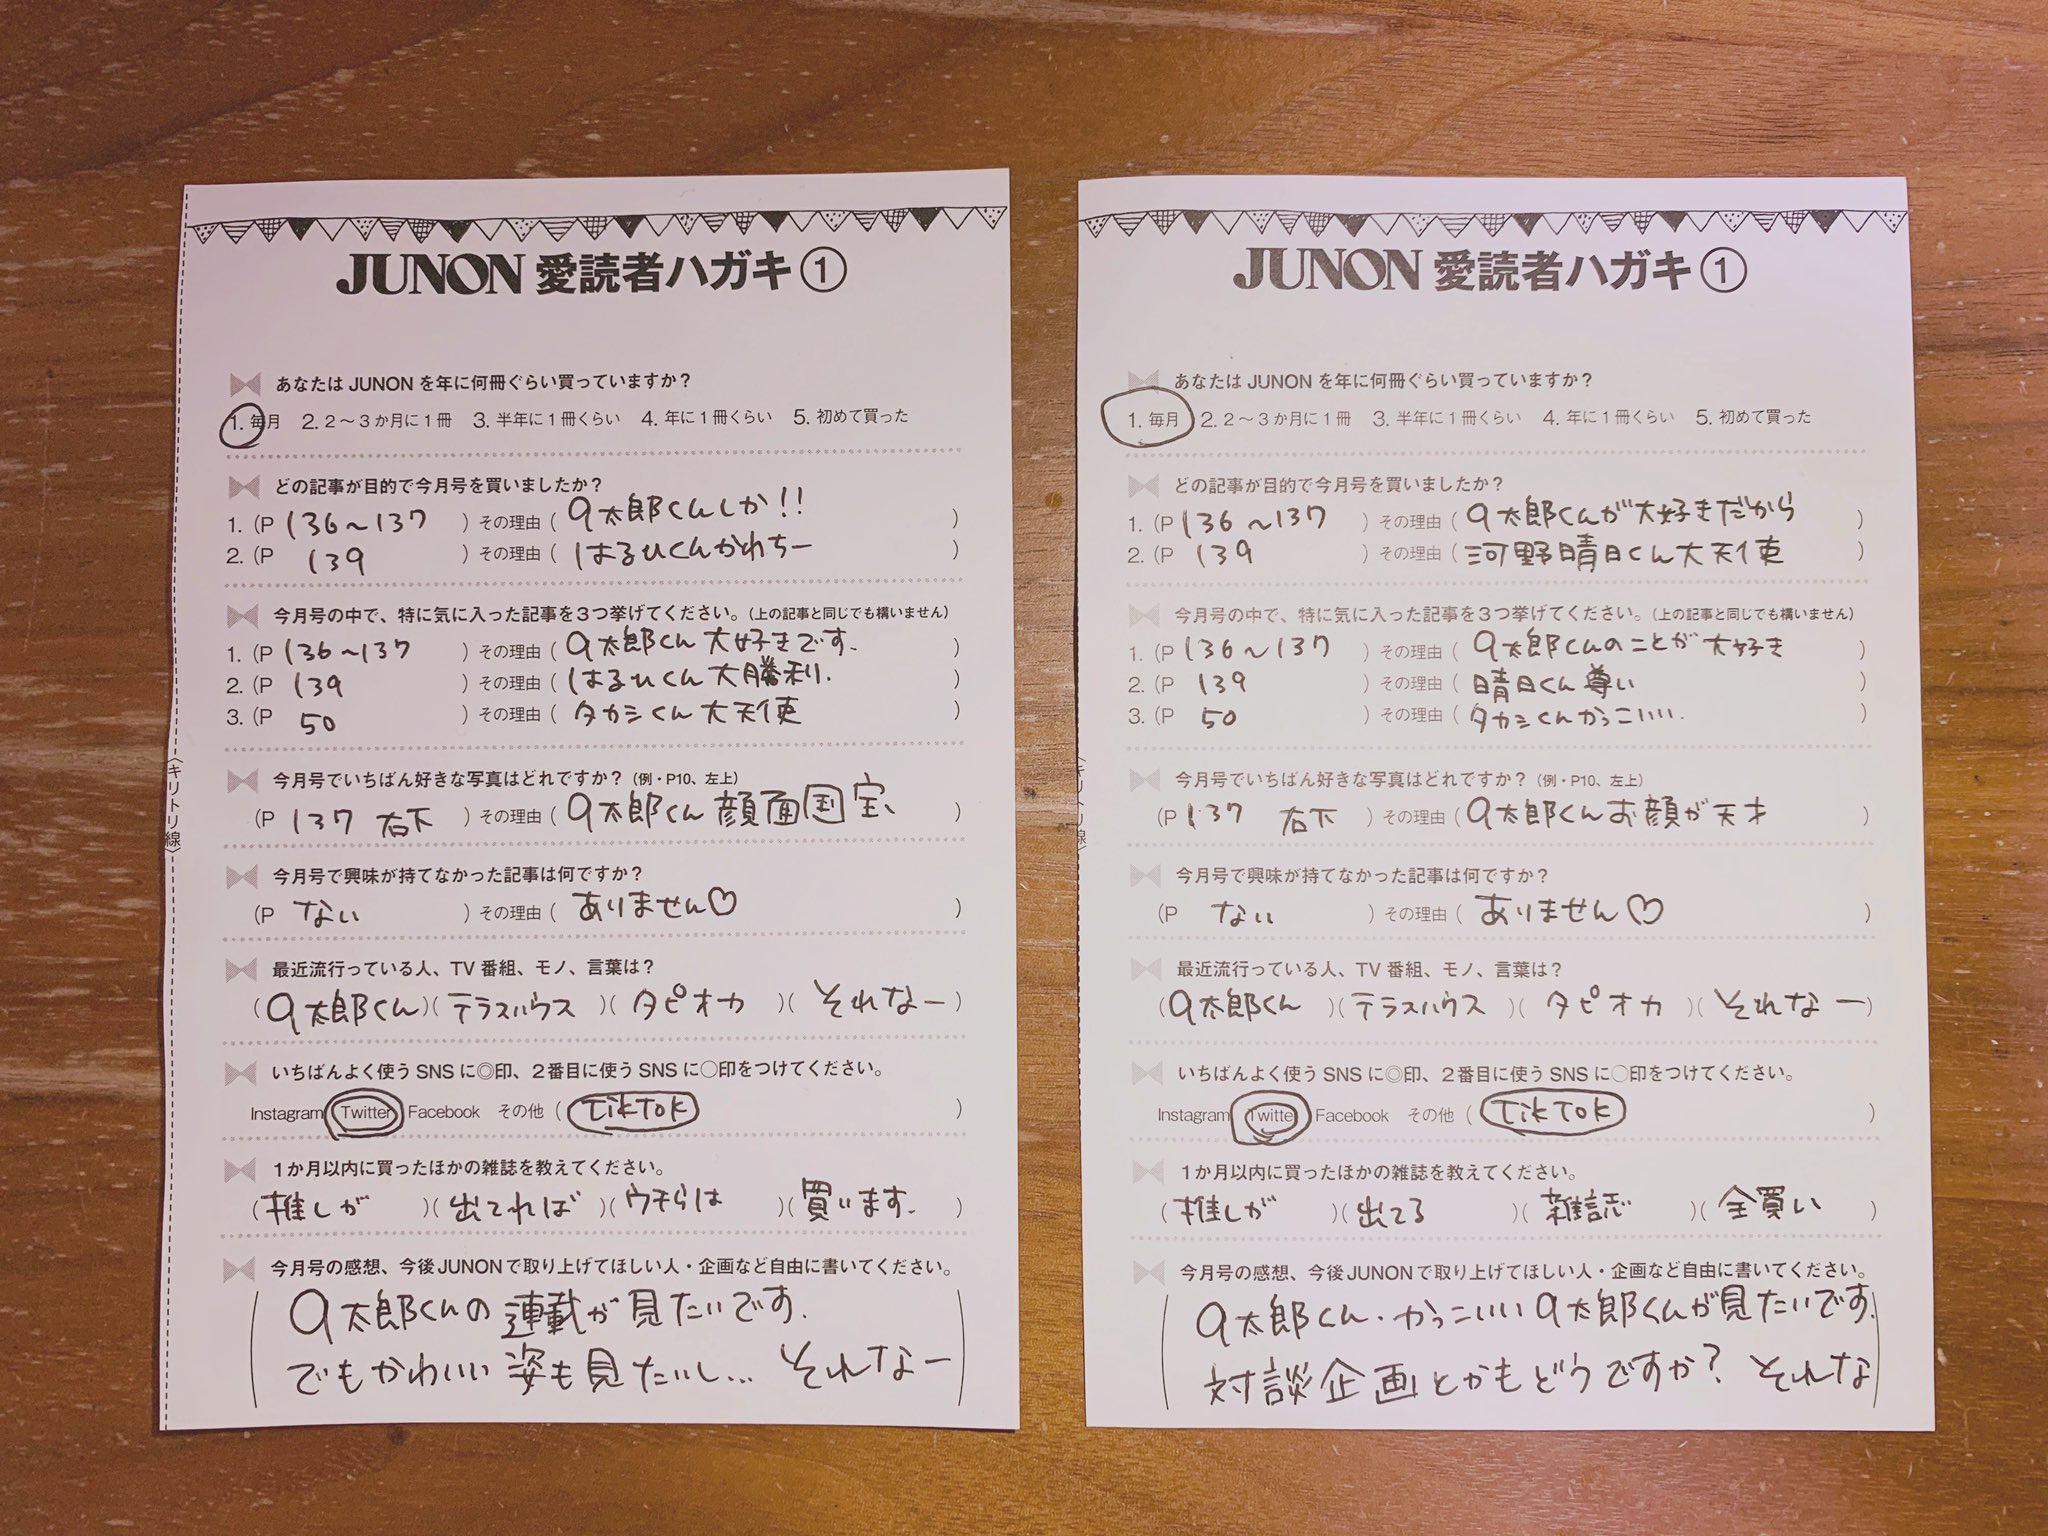 JUNON 愛読者ハガキ①
あなたは JUNON を年に何冊ぐらい買っていますか？
1. 毎月 2. 2～3か月に1冊 3. 半年に1冊くらい 4. 年に1冊くらい 5. 初めて買った
どの記事が目的で今月号を買いましたか？
1. (P 136～137 ) その理由 ( 9太郎くんしか!! )
2. (P 139 ) その理由 ( はるひくんかわちー )
今月号の中で、特に気に入った記事を3つ挙げてください。(上の記事と同じでも構いません)
1. (P 136～137 ) その理由 ( 9太郎くん大好きです. )
2. (P 139 ) その理由 ( はるひくん大勝利. )
3. (P 50 ) その理由 ( タカシくん大天使 )
今月号でいちばん好きな写真はどれですか？(例・P10、左上)
(P 137 右下 ) その理由 ( 9太郎くん顔面国宝、 )
今月号で興味が持てなかった記事は何ですか？
(P ない ) その理由 ( ありません♡ )
最近流行っている人、TV 番組、モノ、言葉は？
(9太郎くん)(テラスハウス)(タピオカ)(それなー)
いちばんよく使う SNS に◎印、2番目に使う SNS に○印をつけてください。
Instagram Twitter Facebook その他 ( TikTok )
1か月以内に買ったほかの雑誌を教えてください。
(推しが)(出てれば)(ウチらは)(買います.)
今月号の感想、今後JUNONで取り上げてほしい人・企画など自由に書いてください。
9太郎くんの連載が見たいです.
でもかわいい姿も見たいし... それなー
〈キリトリ線〉
JUNON 愛読者ハガキ①
あなたは JUNON を年に何冊ぐらい買っていますか？
1. 毎月 2. 2～3か月に1冊 3. 半年に1冊くらい 4. 年に1冊くらい 5. 初めて買った
どの記事が目的で今月号を買いましたか？
1. (P 136～137 ) その理由 ( 9太郎くんが大好きだから )
2. (P 139 ) その理由 ( 河野晴日くん大天使 )
今月号の中で、特に気に入った記事を3つ挙げてください。(上の記事と同じでも構いません)
1. (P 136～137 ) その理由 ( 9太郎くんのことが大好き )
2. (P 139 ) その理由 ( 晴日くん尊い )
3. (P 50 ) その理由 ( タカシくんかっこいい. )
今月号でいちばん好きな写真はどれですか？(例・P10、左上)
(P 137 右下 ) その理由 ( 9太郎くんお顔が天才 )
今月号で興味が持てなかった記事は何ですか？
(P ない ) その理由 ( ありません♡ )
最近流行っている人、TV 番組、モノ、言葉は？
(9太郎くん)(テラスハウス)(タピオカ)(それなー)
いちばんよく使う SNS に◎印、2番目に使う SNS に○印をつけてください。
Instagram Twitter Facebook その他 ( TikTok )
1か月以内に買ったほかの雑誌を教えてください。
(推しが)(出てる)(雑誌)(全買い)
今月号の感想、今後JUNONで取り上げてほしい人・企画など自由に書いてください。
9太郎くん.かっこいい9太郎くんが見たいです.
対談企画とかもどうですか？ それな
〈キリトリ線〉